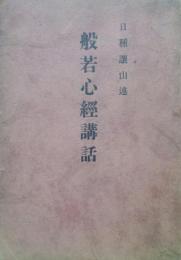 日種讓山述
般若心經講話